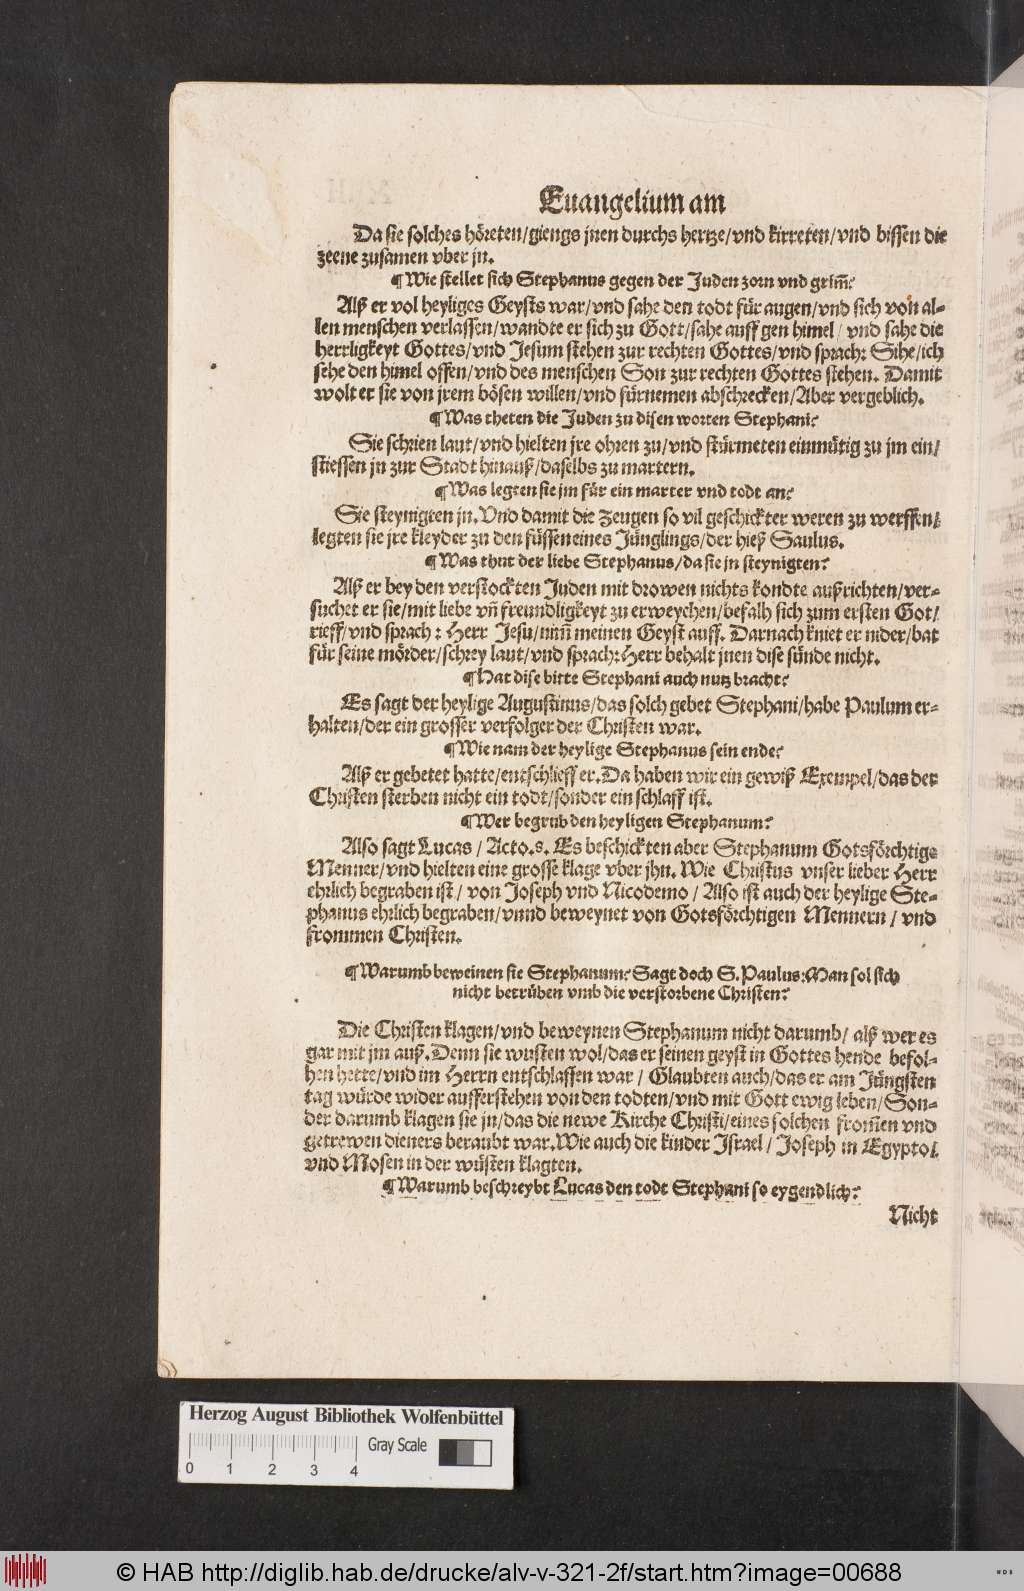 Euangelium am
Da sie solches höreten/giengs jnen durchs hertze/vnd kirreten/vnd bissen die
zeene zusamen vber jn.
¶ Wie stellet sich Stephanus gegen der Juden zorn vnd grim̃?
Alß er vol heyliges Geysts war/vnd sahe den todt für augen/vnd sich von al-
len menschen verlassen/wandte er sich zu Gott/sahe auff gen himel/ vnd sahe die
herrligkeyt Gottes/vnd Jesum stehen zur rechten Gottes/vnd sprach: Sihe/ich
sehe den himel offen/vnd des menschen Son zur rechten Gottes stehen. Damit
wolt er sie von jrem bösen willen/vnd fürnemen abschrecken/Aber vergeblich.
¶ Was theten die Juden zu disen worten Stephani?
Sie schrien laut/vnd hielten jre ohren zu/vnd stürmeten einmütig zu jm ein/
stiessen jn zur Stadt hinauß/daselbs zu martern.
¶ Was legten sie jm für ein marter vnd todt an?
Sie steynigten jn. Vnd damit die Zeugen so vil geschickter weren zu werffen/
legten sie jre kleyder zu den füssen eines Jünglings/der hieß Saulus.
¶ Was thut der liebe Stephanus/da sie jn steynigten?
Alß er bey den verstockten Juden mit drowen nichts kondte außrichten/ver-
suchet er sie/mit liebe vñ freundligkeyt zu erweychen/befalh sich zum ersten Got/
rieff/vnd sprach: Herr Jesu/nim̃ meinen Geyst auff. Darnach kniet er nider/bat
für seine mörder/schrey laut/vnd sprach: Herr behalt jnen dise sünde nicht.
¶ Hat dise bitte Stephani auch nutz bracht?
Es sagt der heylige Augustinus/das solch gebet Stephani/habe Paulum er-
halten/der ein grosser verfolger der Christen war.
¶ Wie nam der heylige Stephanus sein ende?
Alß er gebetet hatte/entschlieff er. Da haben wir ein gewiß Exempel/das der
Christen sterben nicht ein todt/sonder ein schlaff ist.
¶ Wer begrub den heyligen Stephanum?
Also sagt Lucas / Acto.8. Es beschickten aber Stephanum Gotsförchtige
Menner/vnd hielten eine grosse klage vber jhn. Wie Christus vnser lieber Herr
ehrlich begraben ist / von Joseph vnd Nicodemo / Also ist auch der heylige Ste-
phanus ehrlich begraben/vnnd beweynet von Gotsförchtigen Mennern / vnd
frommen Christen.
¶ Warumb beweinen sie Stephanum? Sagt doch S. Paulus: Man sol sich
nicht betrüben vmb die verstorbene Christen?
Die Christen klagen/vnd beweynen Stephanum nicht darumb/ alß wer es
gar mit jm auß. Denn sie wusten wol/das er seinen geyst in Gottes hende befol-
hen hette/vnd im Herrn entschlaffen war / Glaubten auch/das er am Jüngsten
tag würde wider aufferstehen von den todten/vnd mit Gott ewig leben/Son-
der darumb klagen sie jn/das die newe Kirche Christi/eines solchen from̃en vnd
getrewen dieners beraubt war. Wie auch die kinder Jsrael / Joseph in Egypto/
vnd Mosen in der wüsten klagten.
¶ Warumb beschreybt Lucas den todt Stephani so eygendlich?
Nicht
Herzog August Bibliothek Wolfenbüttel
Gray Scale
0 1 2 3 4
© HAB http://diglib.hab.de/drucke/alv-v-321-2f/start.htm?image=00688